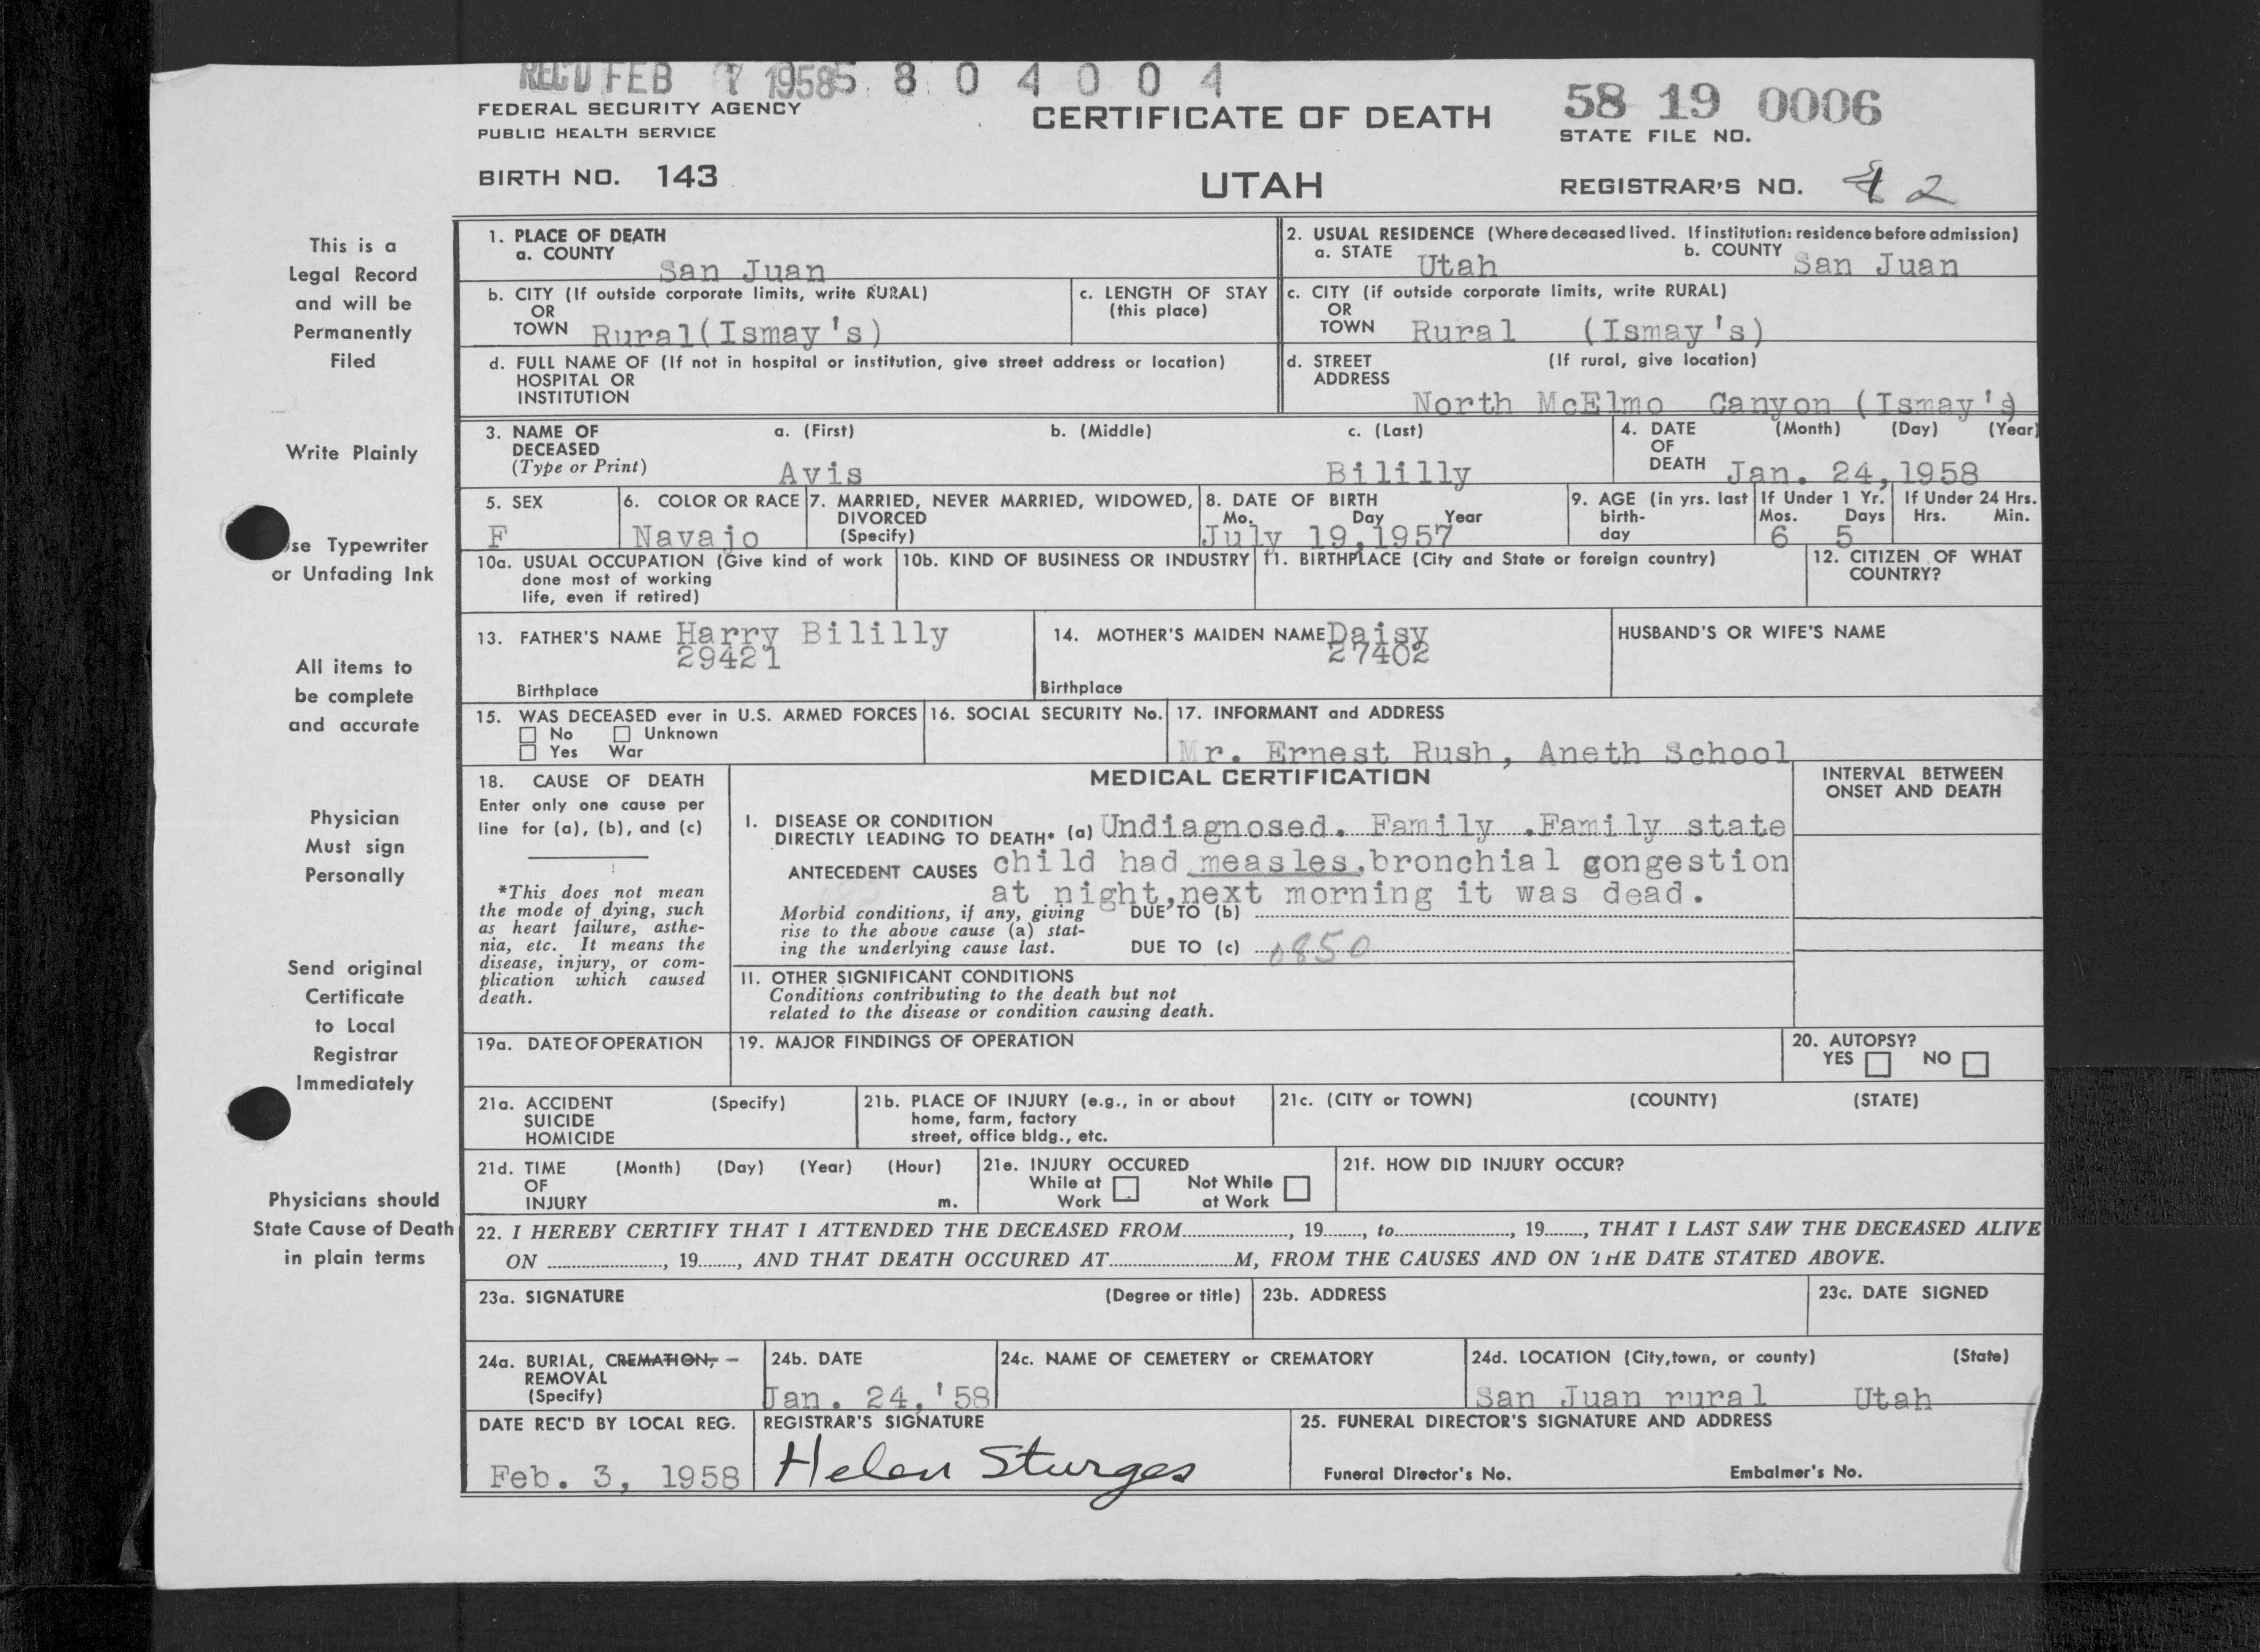 REC'D FEB 7 1958 5 8 0 4 0 0 4
FEDERAL SECURITY AGENCY
PUBLIC HEALTH SERVICE
CERTIFICATE OF DEATH
58 19 0006
STATE FILE NO.
BIRTH NO. 143
UTAH
REGISTRAR'S NO. 2
This is a
Legal Record
and will be
Permanently
Filed
Write Plainly
se Typewriter
or Unfading Ink
All items to
be complete
and accurate
Physician
Must sign
Personally
Send original
Certificate
to Local
Registrar
Immediately
Physicians should
State Cause of Death
in plain terms
1. PLACE OF DEATH
a. COUNTY
San Juan
2. USUAL RESIDENCE (Where deceased lived. If institution: residence before admission)
a. STATE Utah b. COUNTY San Juan
b. CITY (If outside corporate limits, write RURAL)
OR
TOWN Rural(Ismay's)
c. LENGTH OF STAY
(this place)
c. CITY (if outside corporate limits, write RURAL)
OR
TOWN Rural (Ismay's)
d. FULL NAME OF (If not in hospital or institution, give street address or location)
HOSPITAL OR
INSTITUTION
d. STREET (If rural, give location)
ADDRESS
North McElmo Canyon (Ismay's)
3. NAME OF a. (First) b. (Middle) c. (Last)
DECEASED
(Type or Print) Avis Bililly
4. DATE (Month) (Day) (Year)
OF
DEATH Jan. 24, 1958
5. SEX
F
6. COLOR OR RACE
Navajo
7. MARRIED, NEVER MARRIED, WIDOWED,
DIVORCED
(Specify)
8. DATE OF BIRTH
Mo. Day Year
July 19,1957
9. AGE (in yrs. last
birth-
day
If Under 1 Yr.
Mos. Days
6 5
If Under 24 Hrs.
Hrs. Min.
10a. USUAL OCCUPATION (Give kind of work
done most of working
life, even if retired)
10b. KIND OF BUSINESS OR INDUSTRY
11. BIRTHPLACE (City and State or foreign country)
12. CITIZEN OF WHAT
COUNTRY?
13. FATHER'S NAME Harry Bililly
29421
Birthplace
14. MOTHER'S MAIDEN NAME Daisy
27402
Birthplace
HUSBAND'S OR WIFE'S NAME
15. WAS DECEASED ever in U.S. ARMED FORCES
No Unknown
Yes War
16. SOCIAL SECURITY No.
17. INFORMANT and ADDRESS
Mr. Ernest Rush, Aneth School
18. CAUSE OF DEATH
Enter only one cause per
line for (a), (b), and (c)
*This does not mean
the mode of dying, such
as heart failure, asthe-
nia, etc. It means the
disease, injury, or com-
plication which caused
death.
MEDICAL CERTIFICATION
INTERVAL BETWEEN
ONSET AND DEATH
I. DISEASE OR CONDITION
DIRECTLY LEADING TO DEATH* (a) Undiagnosed. Family .Family state
ANTECEDENT CAUSES child had measles,bronchial gongestion
at night,next morning it was dead.
Morbid conditions, if any, giving DUE TO (b)
rise to the above cause (a) stat-
ing the underlying cause last. DUE TO (c) 0850
II. OTHER SIGNIFICANT CONDITIONS
Conditions contributing to the death but not
related to the disease or condition causing death.
19a. DATE OF OPERATION
19. MAJOR FINDINGS OF OPERATION
20. AUTOPSY?
YES NO
21a. ACCIDENT (Specify)
SUICIDE
HOMICIDE
21b. PLACE OF INJURY (e.g., in or about
home, farm, factory
street, office bldg., etc.
21c. (CITY or TOWN) (COUNTY) (STATE)
21d. TIME (Month) (Day) (Year) (Hour)
OF
INJURY m.
21e. INJURY OCCURED
While at Not While
Work at Work
21f. HOW DID INJURY OCCUR?
22. I HEREBY CERTIFY THAT I ATTENDED THE DECEASED FROM........, 19......, to........, 19......, THAT I LAST SAW THE DECEASED ALIVE
ON ........, 19......, AND THAT DEATH OCCURED AT........M, FROM THE CAUSES AND ON THE DATE STATED ABOVE.
23a. SIGNATURE (Degree or title)
23b. ADDRESS
23c. DATE SIGNED
24a. BURIAL, CREMATION, -
REMOVAL
(Specify)
24b. DATE
Jan. 24,'58
24c. NAME OF CEMETERY or CREMATORY
24d. LOCATION (City, town, or county) (State)
San Juan rural Utah
DATE REC'D BY LOCAL REG.
Feb. 3, 1958
REGISTRAR'S SIGNATURE
Helen Sturges
25. FUNERAL DIRECTOR'S SIGNATURE AND ADDRESS
Funeral Director's No. Embalmer's No.